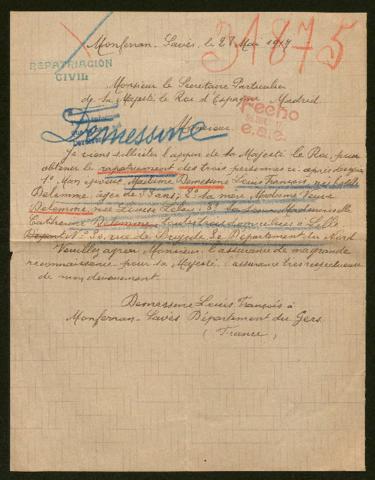 Monferran-Savès, le 27 Mai 1917
31875
REPATRIACION
CIVIL
Monsieur le Secrétaire Particulier
de Sa Majesté le Roi d'Espagne Madrid.
Fecho
e.s.c.
Demessine
Monsieur
Je viens solliciter l'appui de Sa Majesté le Roi, pour
obtenir le rapatriement des trois personnes ci-après
1º Mon épouse Madame Demessine Louis François, née
Delemme, âgée de ans; 2º sa mère, Madame Veuve
Delemme née Louise 3º Mademoiselle
Catherine domiciliées à Lille
rue de Département du Nord
Veuillez agréer Monsieur l'assurance de ma grande
reconnaissance, pour Sa Majesté l'assurance très respectueuse
de mon dévouement.
Demessine Louis François à
Monferran-Savès Département du Gers.
(France)